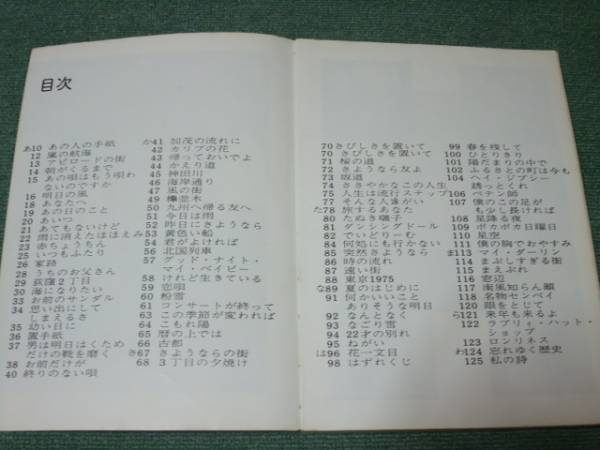 目次
あ10 あの人の手紙
12 嵐の航海
13 アビロードの街
14 朝がくるまで
15 あの唄はもう唄わ
ないのですか
16 明日の風
18 あなたへ
19 あの日のこと
20 あいつ
21 あてもないけど
22 雨に消えたほほえみ
23 赤ちょうちん
25 いつもふたり
26 家路
28 うちのお父さん
29 荻窪2丁目
30 海になりたい
33 お前のサンダル
34 思い出にして
しまえるさ
35 幼い日に
36 置手紙
37 男は明日はくため
だけの靴を磨く
38 お前だけが
40 終りのない唄
か41 加茂の流れに
42 カリブの花
43 帰っておいでよ
44 かえり道
45 神田川
46 海岸通り
47 風の街
49 橡並木
50 九州へ帰る友へ
51 今日は雨
52 昨日にさようなら
53 黄色い船
54 君がよければ
56 北国列車
57 グッド・ナイト・
マイ・ベイビー
58 けれど生きている
59 恋唄
60 粉雪
61 コンサートが終って
63 この季節が変われば
64 こもれ陽
65 暦の上では
66 古都
さ67 さようならの街
68 3丁目の夕焼け
70 さびしさを置いて
70 さびしさを置いて
71 桜の道
72 さようなら友よ
73 坂道
74 ささやかなこの人生
75 人生は流行ステップ
77 そんな人達がい
た78 旅するあなた
80 たぬき囃し
81 ダンシングドール
82 でいどりーむ
84 何処にも行かない
85 突然さようなら
86 時の流れ
87 遠い街
88 東京1975
な89 夏のはじめに
91 何かいいこと
ありそうな明日
92 なんとなく
93 なごり雪
94 22才の別れ
95 ねがい
は96 花一文目
98 はずれくじ
99 春を残して
100 ひとりきり
101 陽だまりの中で
102 ふるさとの町は今も
104 ヘイ・ジプシー
誘っとくれ
106 ペテン師
107 僕のこの足が
もう少し長ければ
108 星降る夜
109 ポカポカ日曜日
110 星空
111 僕の胸でおやすみ
ま113 マイ・ダーリン
114 まぶしすぎる街
115 まえぶれ
116 窓辺
117 南風知らん顔
118 名物センベイ
120 眼をとじて
ら121 来年も来るよ
122 ラブリィ・ハット・
ショップ
123 ロンリネス
わ124 忘れゆく歴史
125 私の詩